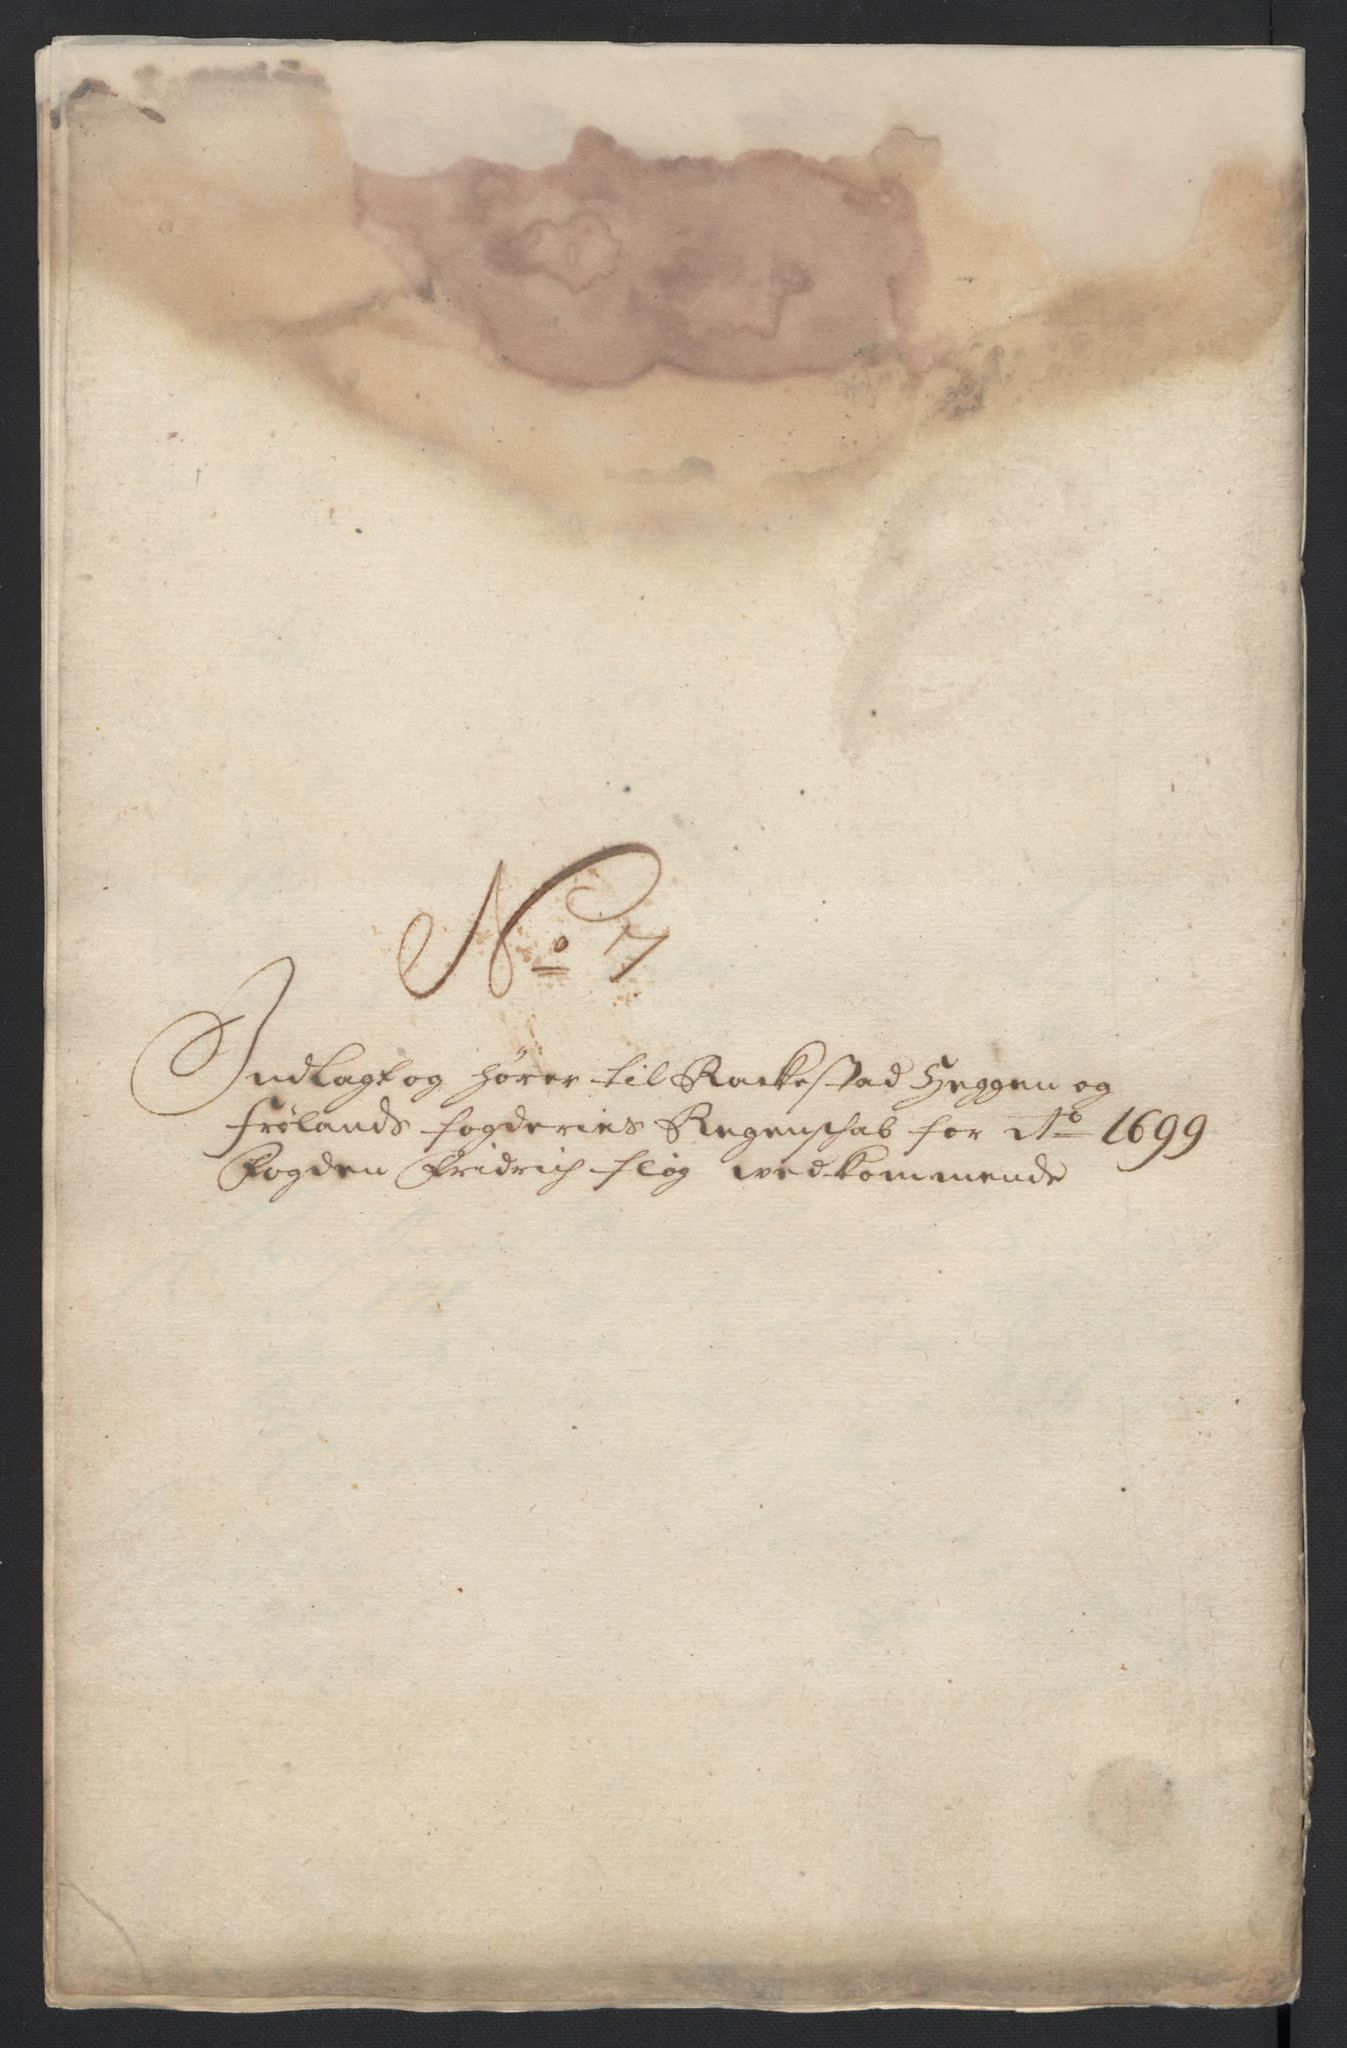 No 7
Indlagt og hører til Rackestad Heggen og
Frølands fogderies Regenschab for Ao 1699
Fogden Fridrich fløg wedkommende